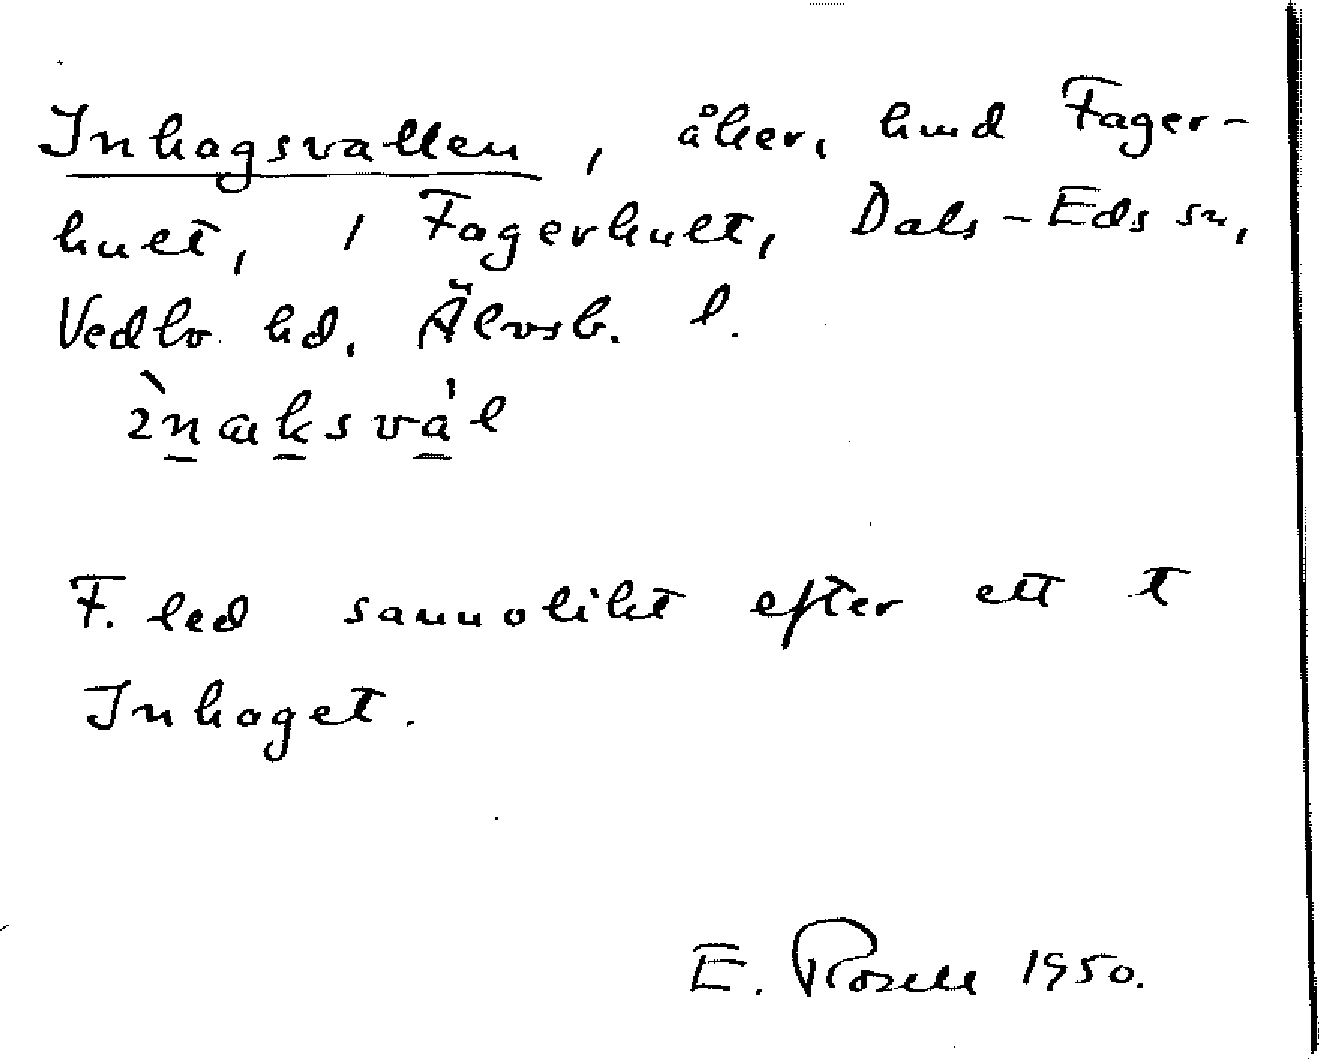 Inhagsvallen, åker, hmd Fager-
hult, 1 Fagerhult, Dals-Eds sn,
Vedbo hd, Älvsb. l.
F. led sannolikt efter ett t
Inhaget.
E. Rosell 1950.